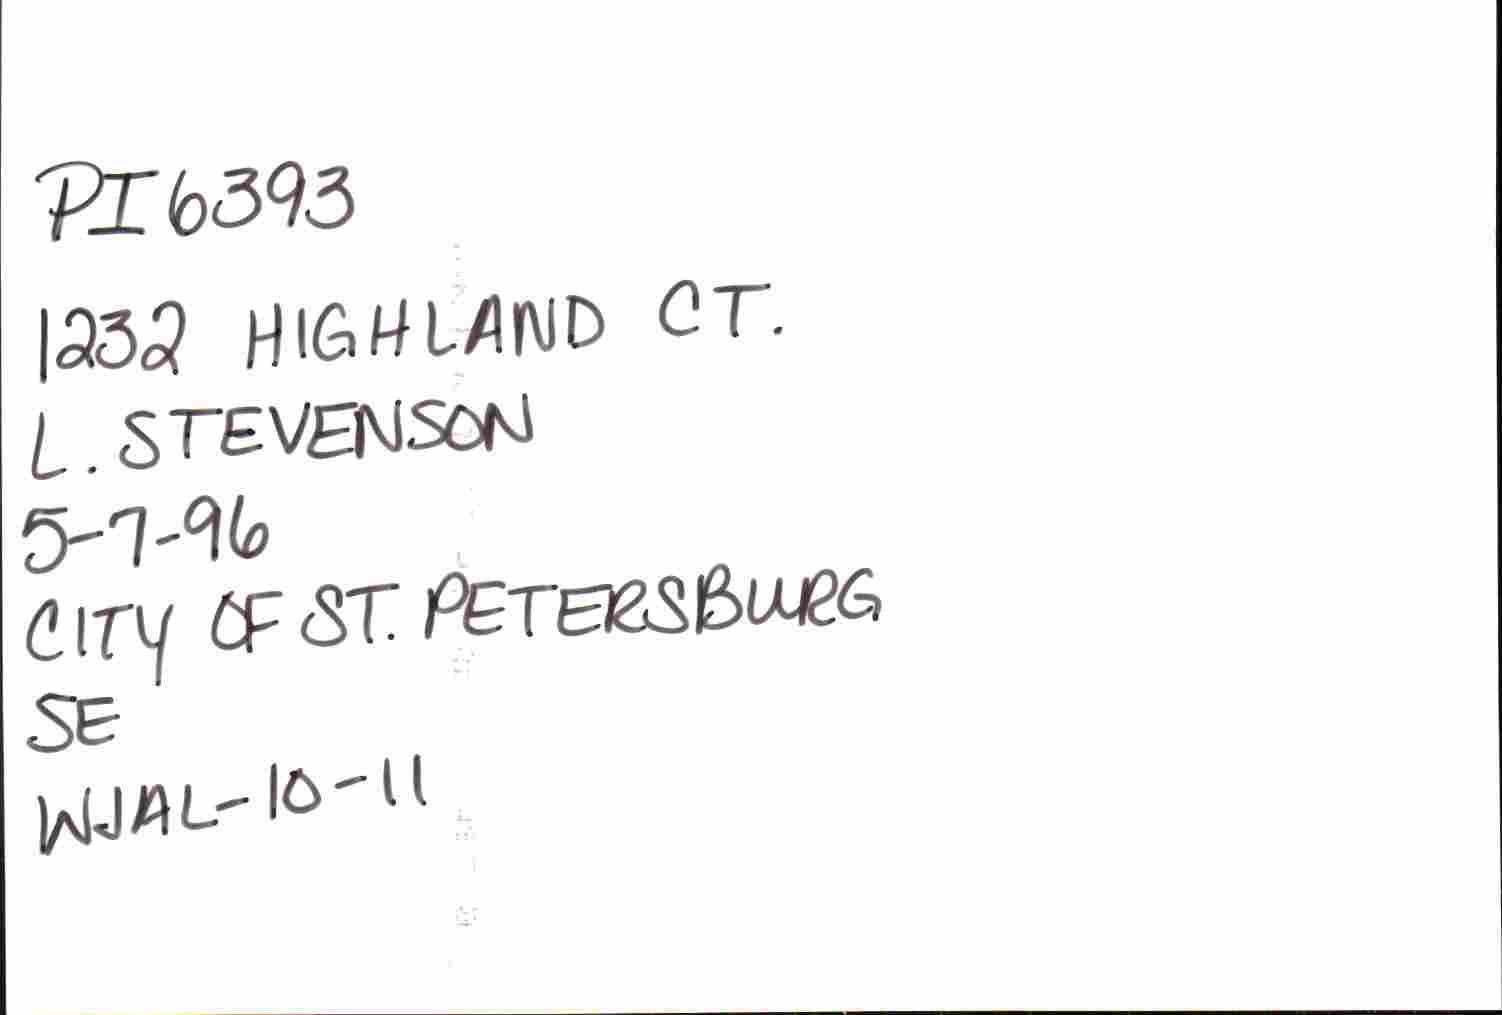 PI6393
1232 HIGHLAND CT.
L. STEVENSON
5-7-96
CITY OF ST. PETERSBURG
SE
WJAL-10-11